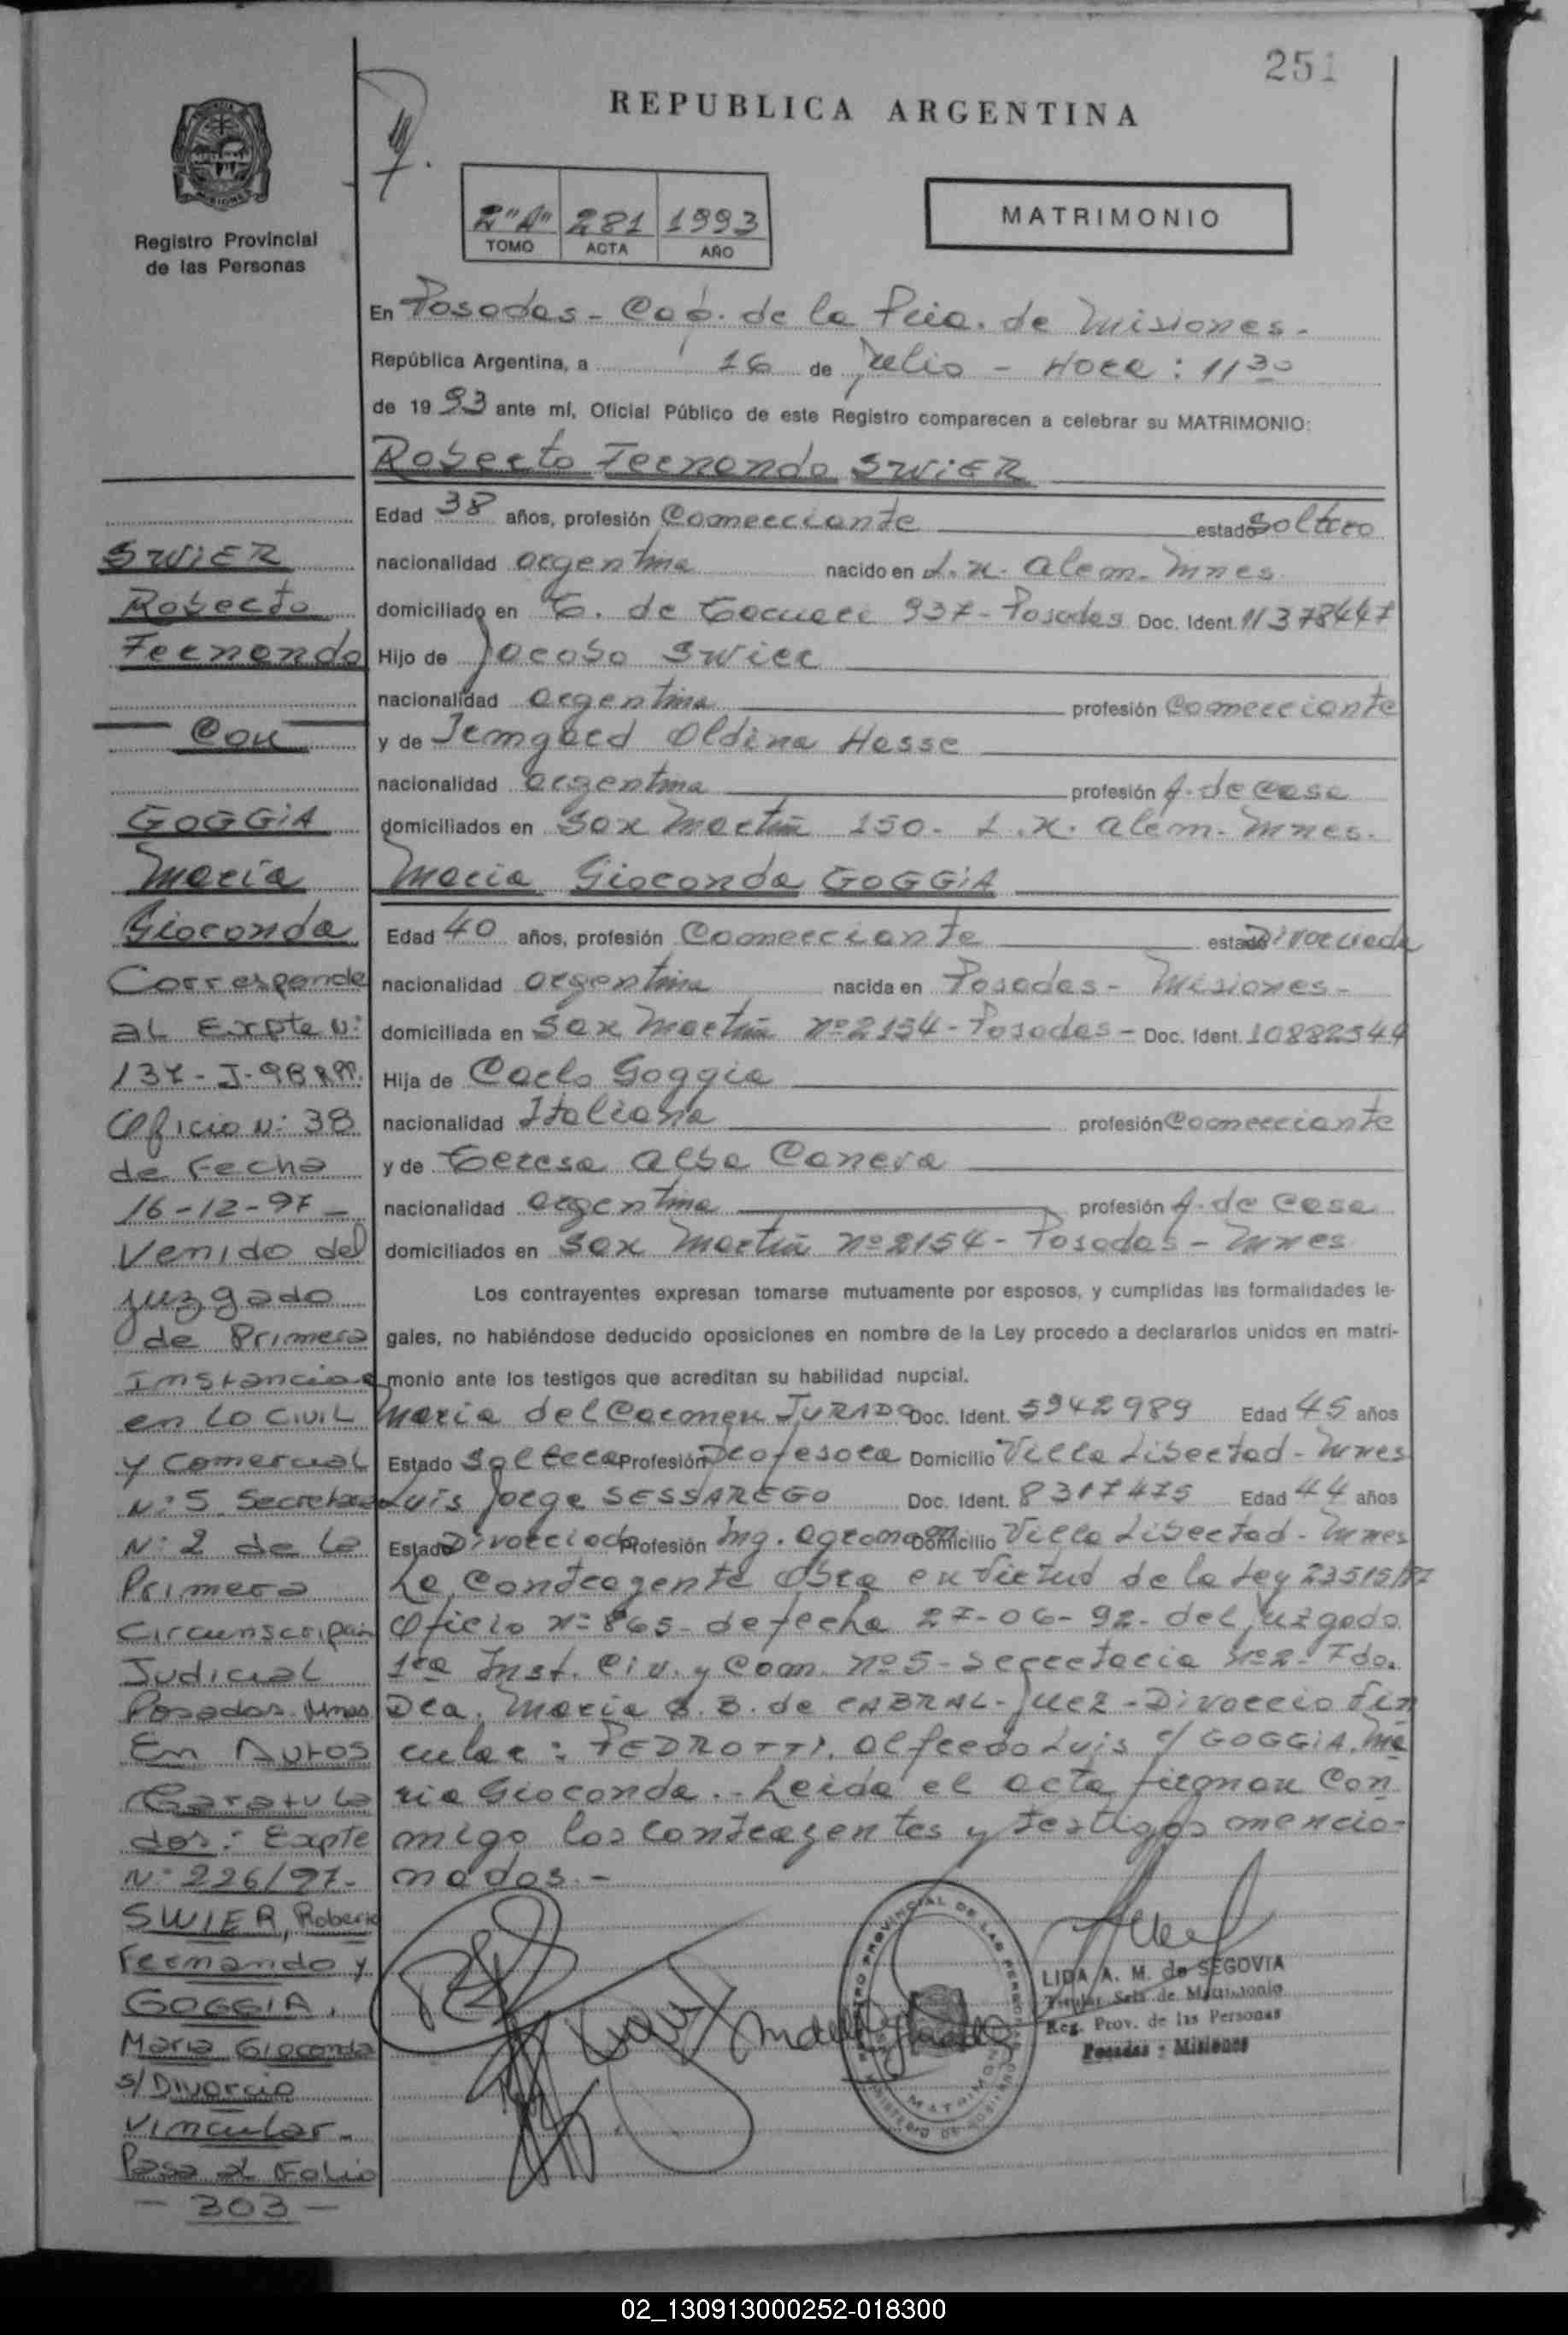 251
REPUBLICA ARGENTINA
Registro Provincial
de las Personas
2"A" 281 1993
TOMO ACTA AÑO
MATRIMONIO
En Posadas - Cap. de la Pcia. de Misiones.-
República Argentina, a 16 de Julio - Hora: 11 30
de 1993 ante mí, Oficial Público de este Registro comparecen a celebrar su MATRIMONIO:
Roberto Fernando SWIER
Edad 38 años, profesión Comerciante estado Soltero
nacionalidad argentina nacido en L.N. Alem. Mnes.
domiciliado en T. de Tacuari 937 - Posadas Doc. Ident. 11378447
Hijo de Jacobo Swier
nacionalidad argentina profesión Comerciante
y de Irmgard Oldina Hasse
nacionalidad argentina profesión A. de casa
domiciliados en San Martín 150 - L.N. Alem - Mnes.
Maria Gioconda GOGGIA
Edad 40 años, profesión Comerciante estado Divorciada
nacionalidad argentina nacida en Posadas - Misiones -
domiciliada en San Martín nº 2154 - Posadas - Doc. Ident. 10882544
Hija de Carlo Goggia
nacionalidad Italiana profesión Comerciante
y de Teresa Alba Caneva
nacionalidad argentina profesión A. de casa
domiciliados en San Martín nº 2154 - Posadas - Mnes
Los contrayentes expresan tomarse mutuamente por esposos, y cumplidas las formalidades le-
gales, no habiéndose deducido oposiciones en nombre de la Ley procedo a declararlos unidos en matri-
monio ante los testigos que acreditan su habilidad nupcial.
Maria del Carmen JURADO Doc. Ident. 5942989 Edad 45 años
Estado Soltera Profesión Profesora Domicilio Villa Libertad - Mnes
Luis Jorge SESSAREGO Doc. Ident. 8317475 Edad 44 años
Estado Divorciado Profesión Ing. agronomo Domicilio Villa Libertad - Mnes
La Contragente obra en virtud de la Ley 23515/87
Oficio Nº 865 - de fecha 27-06-92 - del Juzgado
1ra Inst. Civ. y Com. nº 5 - Secretaria nº 2 - Fdo.
Dra. Maria B. de CABRAL - Juez - Divorcio Vin
cular: PEDROTTI, Alfredo Luis c/ GOGGIA, Ma
ria Gioconda.- Leida el acta firman Con
migo los contragentes y testigos mencio-
nados.-
SWIER
Roberto
Fernando
Con
GOGGIA
Maria
Gioconda
Corresponde
al Expte Nº
137-J-98 RPP.
Oficio Nº 38
de Fecha
16-12-97-
Venido del
Juzgado
de Primera
Instancia
en lo Civil
y Comercial
Nº 5 Secretaria
Nº 2 de la
Primera
Circunscripción
Judicial
Posadas Mnes
En Autos
Caratula
dos: Expte
Nº 226/97-
SWIER, Roberto
Fernando y
GOGGIA,
Maria Gioconda
s/ Divorcio
Vincular.-
Pasa al Folio
- 303 -
REGISTRO PROVINCIAL DE LAS PERSONAS
MATRIMONIO
LIDA A. M. de SEGOVIA
Titular Secc. de Matrimonio
Reg. Prov. de las Personas
Posadas - Misiones
02_130913000252-018300